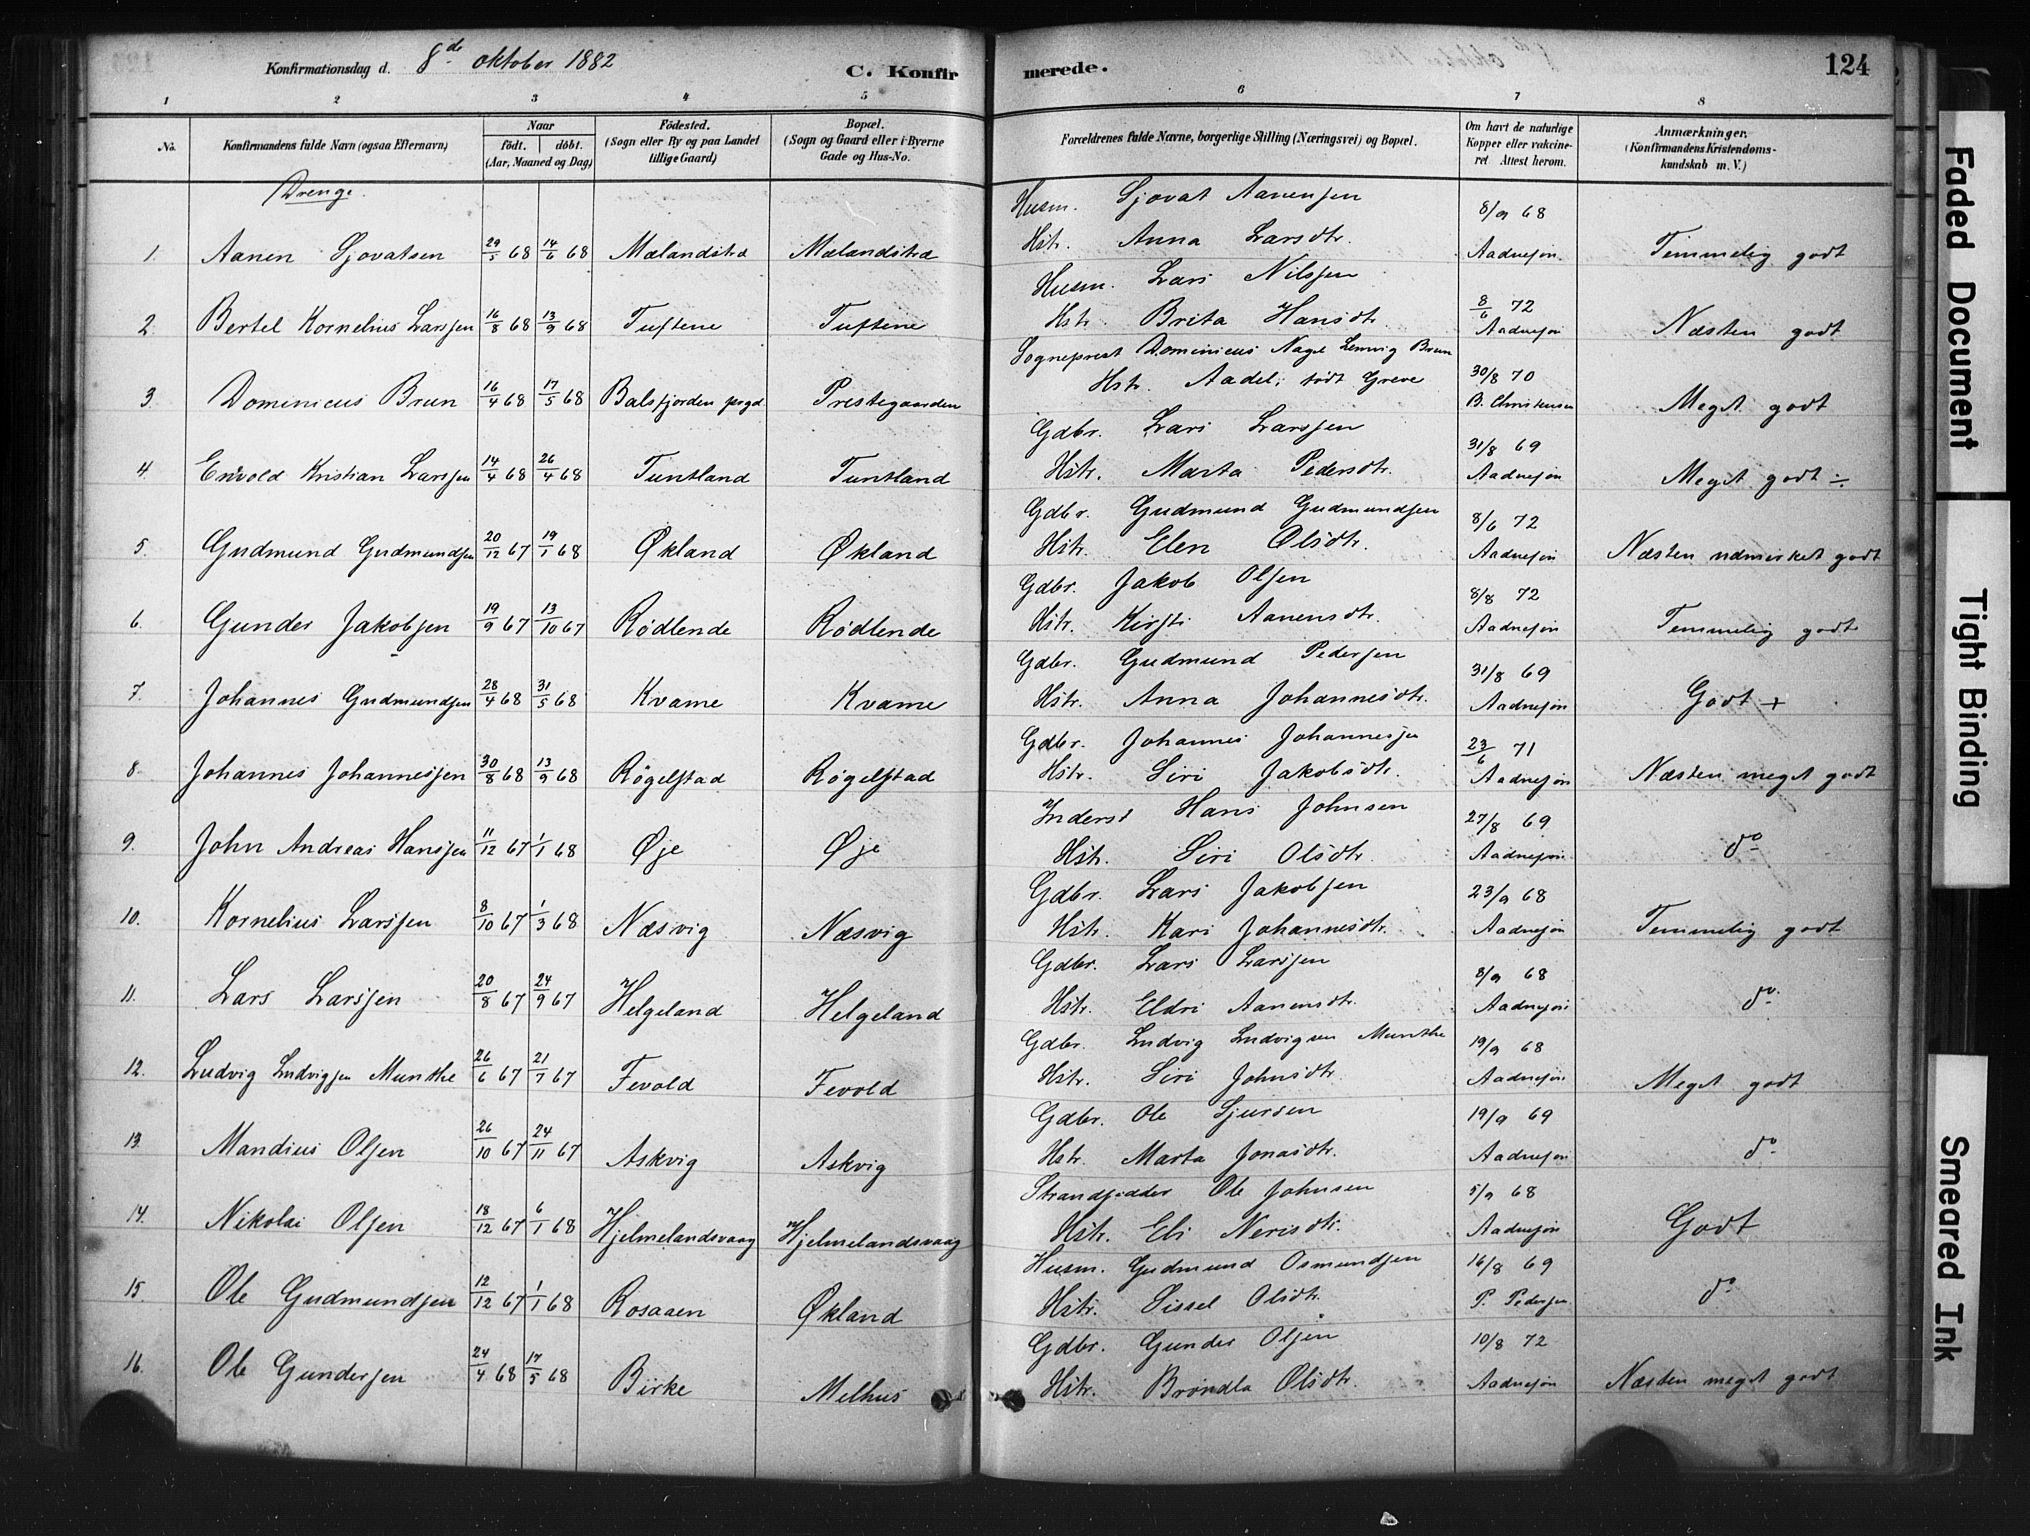 Konfirmationsdag d. 8de oktober 1882 C. Konfirmerede. 124
1 2 3 4 5 6 7 8
No. Konfirmandens fulde Navn (ogsaa Efternavn) Naar født. døbt. (Aar, Maaned og Dag) Fødested. (Sogn eller By og paa Landet tillige Gaard) Bopæl. (Sogn og Gaard eller i Byerne Gade og Hus-No. Forældrenes fulde Navne, borgerlige Stilling (Næringsvei) og Bopæl. Om havt de naturlige Kopper eller vakcineret Attest herom. Anmærkninger. (Konfirmandens Kristendomskundskab m. V.)
Drenge.
Husm. Sjovat Aanensen 8/9 68
1. Aanen Sjovatsen 29/5 68 14/6 68 Mælandstrd Mælandstrd Hstr. Anna Larsdtr. Aadnesøn Temmelig godt
Husm. Lars Nilssen
2. Bertel Kornelius Larssen 16/8 68 13/9 68 Tuftene Tuftene Hstr. Brita Hansdtr. 8/6 72 Aadnesøn Næsten godt
Sogneprest Dominicus Nagel Lemvig Brun
3. Dominicus Brun 16/4 68 17/5 68 Balsfjorden prgd. Prestegaarden Hstr. Aadel, født Greve 30/8 70 B. Christensen Meget godt
Gdbr. Lars Larssen 31/8 69
4. Envold Kristian Larssen 14/4 68 26/4 68 Tuntland Tuntland Hstr. Marta Pedersdtr. Aadnesøn Meget godt ÷
Gdbr. Gudmund Gudmundsen 8/6 72
5. Gudmund Gudmundsen 20/12 67 19/1 68 Økland Økland Hstr. Elen Olsdtr. Aadnesøn Næsten udmerket godt
Gdbr. Jakob Olsen 8/8 72
6. Gunder Jakobsen 19/9 67 13/10 67 Rødlende Rødlende Hstr. Kirsti Aanensdtr. Aadnesøn Temmelig godt
Gdbr. Gudmund Pedersen 31/8 69
7. Johannes Gudmundsen 28/4 68 31/5 68 Kvame Kvame Hstr. Anna Johannesdtr. Aadnesøn Godt +
Gdbr. Johannes Johannessen 23/6 71
8. Johannes Johannessen 30/8 68 13/9 68 Røgelstad Røgelstad Hstr. Siri Jakobsdtr. Aadnesøn Næsten meget godt
Inderst Hans Johnsen 27/8 69
9. John Andreas Hanssen 11/12 67 1/1 68 Øje Øje Hstr. Siri Olsdtr. Aadnesøn do
Gdbr. Lars Jakobsen 23/9 68
10. Kornelius Larssen 8/10 67 1/3 68 Næsvig Næsvig Hstr. Kari Johannesdtr. Aadnesøn Temmelig godt
Gdbr. Lars Larssen 8/9 68
11. Lars Larssen 20/8 67 24/9 67 Helgeland Helgeland Hstr. Eldri Aanensdtr. Aadnesøn do
Gdbr. Ludvig Ludvigsen Munthe 19/9 68
12. Ludvig Ludvigsen Munthe 26/6 67 21/7 67 Fevold Fevold Hstr. Siri Johnsdtr. Aadnesøn Meget godt
Gdbr. Ole Sjursen 19/9 69
13. Mandius Olsen 26/10 67 24/11 67 Askvig Askvig Hstr. Marta Jonasdtr. Aadnesøn do
Strandsidder Ole Johnsen 5/9 68
14. Nikolai Olsen 18/12 67 6/1 68 Hjelmelandsvaag Hjelmelandsvaag Hstr. Eli Nerisdtr. Aadnesøn Godt
Husm. Gudmund Osmundsen 16/8 69
15. Ole Gudmundsen 12/12 67 1/1 68 Rosaaen Økland Hstr. Sissel Olsdtr. P. Pedersen do
Gdbr. Gunder Olsen 10/8 72
16. Ole Gundersen 24/4 68 17/5 68 Birke Melhus Hstr. Brøndla Olsdtr. Aadnesøn Næsten meget godt
Faded Document
Tight Binding
Smeared Ink